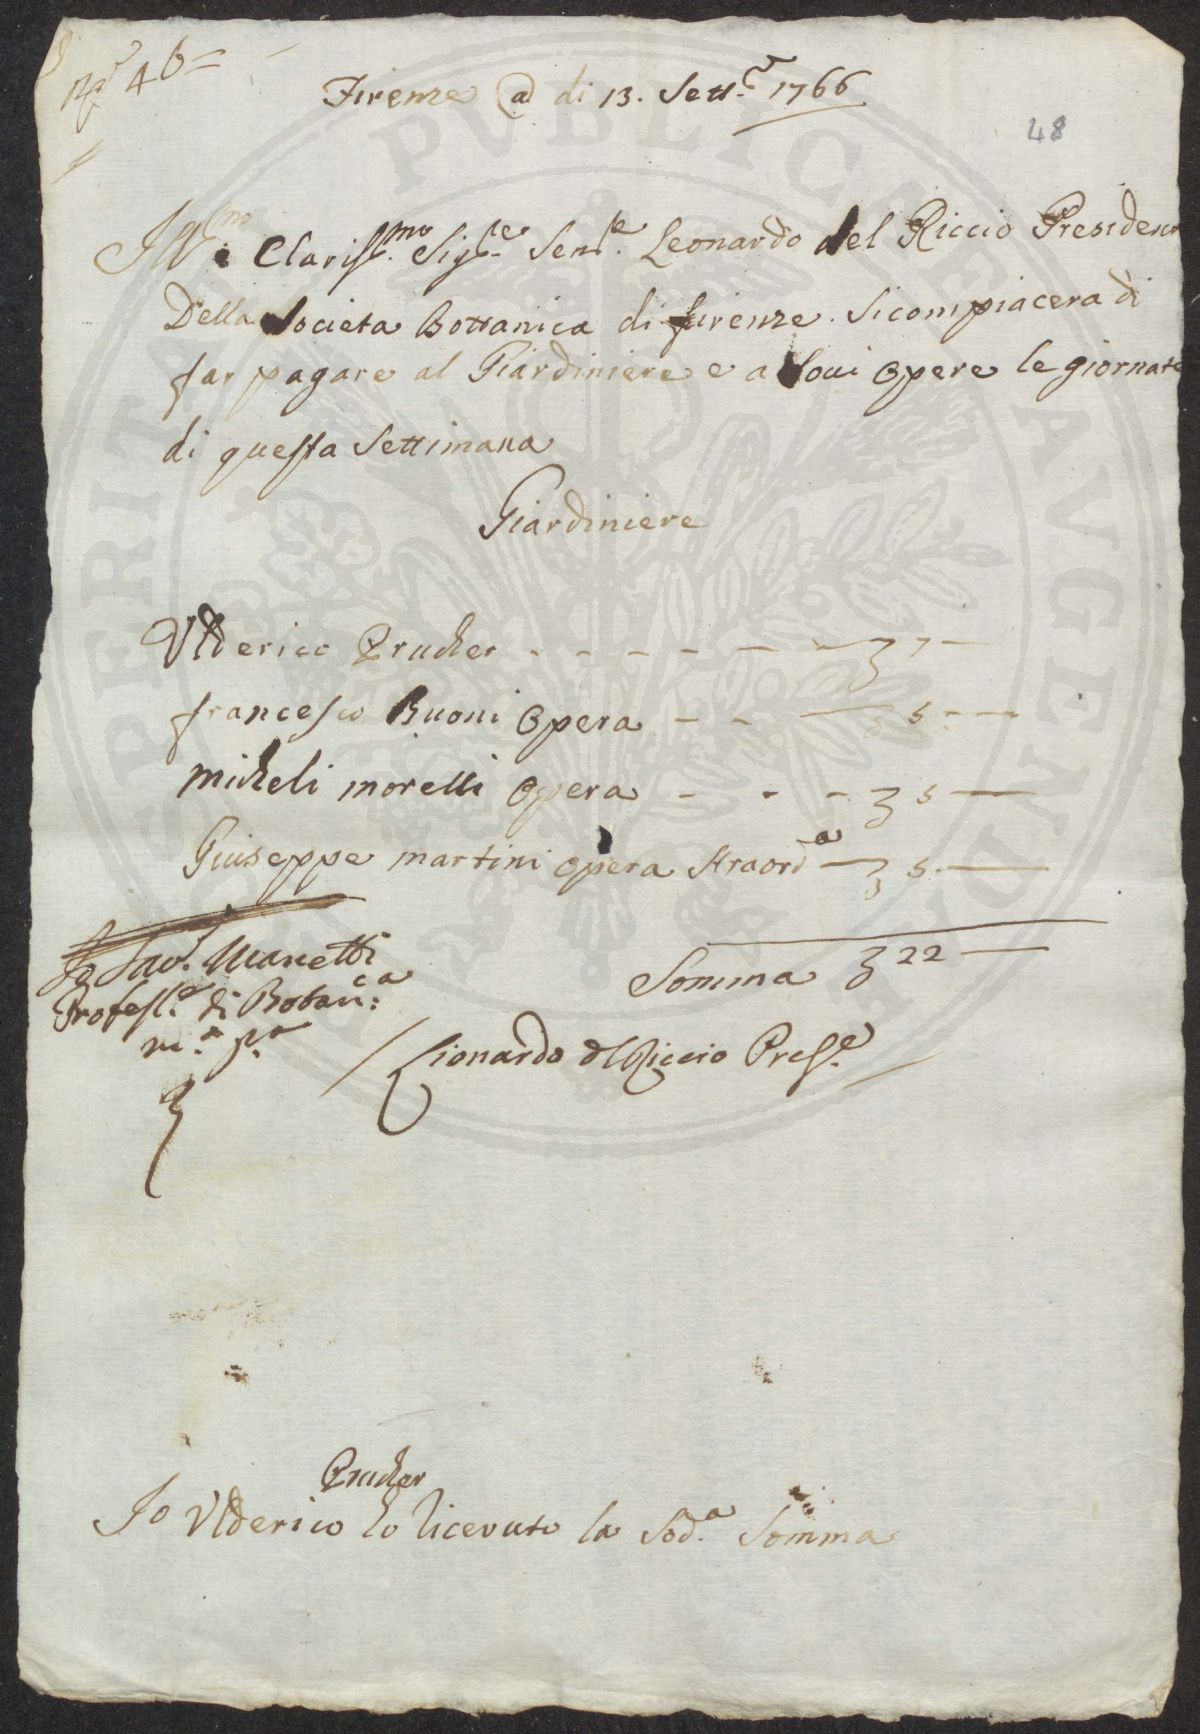 Nr 46=
Firenze @ di 13. Sett.e 1766
48
Illmo e Clariss.mo Sig.re Sen.e Leonardo del Riccio President
Della Societa Bottanica di firenze. Si compiacera di
far pagare al Giardiniere e a Soui Opere le giornate
di questa Settimana
Giardiniere
Ulderico Prucher - - - - - - - 7 -
francesco Buoni Opera - - - 5. - -
Micheli morelli Opera - - - 5 -
Giuseppe martini opera straord.a - 5. -
Somma 22 -
Io Sav. Manetti
Profess.e di Botan.ca
m.o p.a
Lionardo del Riccio Pres.e
Prucher
Io Ulderico ho licevuto la Sod.a Somma
PERITAS PVBLICA AVGENDA